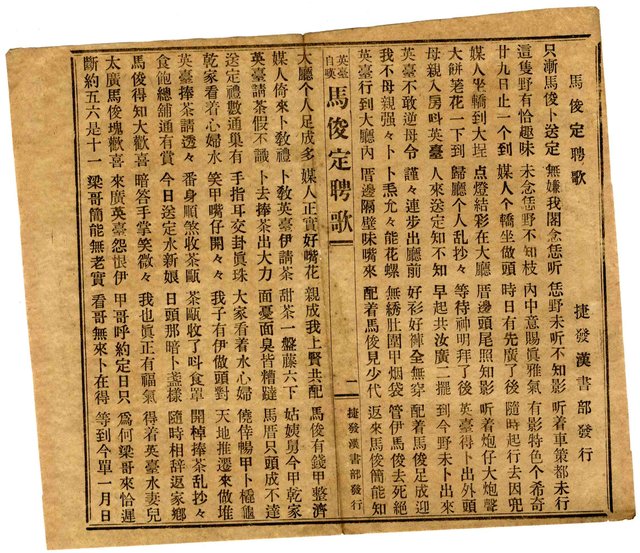 馬俊定聘歌 捷發漢書部發行
只漸馬俊卜送定 無嫌我閣念恁听 恁野未听不知影 听着車策都未行
這隻野有恰趣味 未念恁野不知枝 內中意賜眞雅氣 有影特色个希奇
廿九日止一个到 媒人个轎坐做頭 時日有先廣了後 隨時起行去因兜
媒人坐轎到大埕 点燈結彩在大廳 厝邊頭尾照知影 听着炮仔大炮聲
大餅荖花一下到 歸廳个人乱抄々 等待神明拜了後 英臺得卜出外頭
母親入房呌英臺 人來送定知不知 早起共汝廣二擺 到今野未卜出來
英臺不敢逆母令 謹々連步出廳前 好彩好褲全無穿 配着馬俊足成迎
我不母親强々卜 卜允々能花螺 無綉肚圍甲烟袋 管伊馬俊去死絕
英臺行到大廳內 厝邊隔壁味嘴來 配着馬俊見少代 返來馬俊簡能知
英臺自嘆 馬俊定聘歌 一 捷發漢書部發行
大廳个人足成多 媒人正實好嘴花 親成我上賢共配 馬俊有錢甲整濟
媒人倚來卜教禮 卜教英臺伊請茶 甜茶一盤藤六下 姑姨舅今甲乾家
英臺請茶假不識 卜去捧茶出大力 面憂面臭皆糟躂 馬厝只頭成不達
送定禮數通巢有 手指耳交卦眞珠 大家看着心婦水 僥倖暢甲卜橇龜
乾家看着心婦水 笑甲嘴仔開々々 我子有伊做頭對 天地推遷來做堆
英臺捧茶請透々 番身順煞收茶甌 茶甌收了呌食罩 開棹捧茶乱抄々
食飽總舖通有賞 今日送定水新娘 日頭那暗卜盞樣 隨時相辞返家鄉
馬俊得知大歡喜 暗答手掌笑微々 我也眞正有福氣 得着英臺水妻兒
太廣馬俊塊歡喜 來廣英臺怨恨伊 甲哥呼約定日只 為何梁哥來恰遲
斷約五六是十一 梁哥簡能無老實 看哥無來卜在得 等到今單一月日